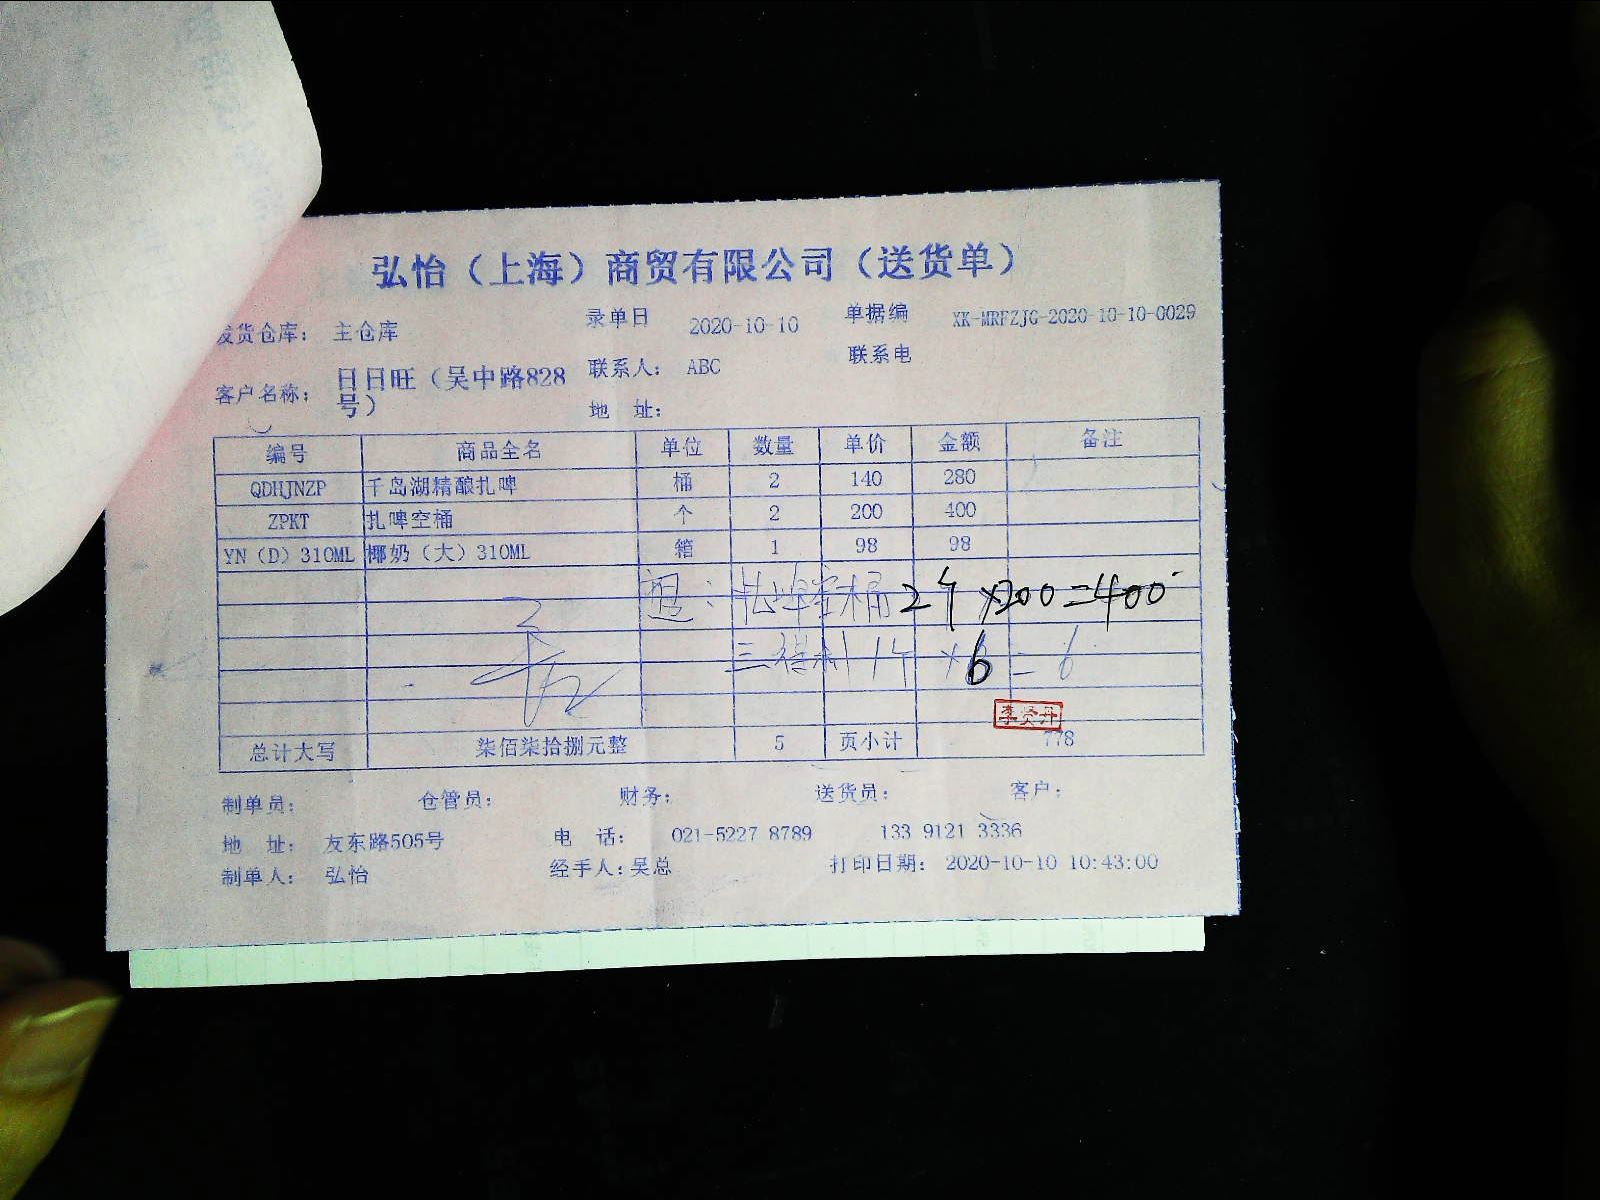 弘怡（上海）商贸有限公司（送货单）
发货仓库： 主仓库 录单日 2020-10-10 单据编 XK-MRFZJG-2020-10-10-0029
客户名称： 日日旺（吴中路828号） 联系人： ABC 联系电
地 址：
编号 商品全名 单位 数量 单价 金额 备注
QDHJNZP 千岛湖精酿扎啤 桶 2 140 280
ZPKT 扎啤空桶 个 2 200 400
YN（D）310ML 椰奶（大）310ML 箱 1 98 98
退：扎啤空桶2个×200=400
1个×6=6
李贤丹
总计大写 柒佰柒拾捌元整 5 页小计 778
制单员： 仓管员： 财务； 送货员： 客户：
地 址： 友东路505号 电 话： 021-5227 8789 133 9121 3336
制单人： 弘怡 经手人：吴总 打印日期： 2020-10-10 10:43:00